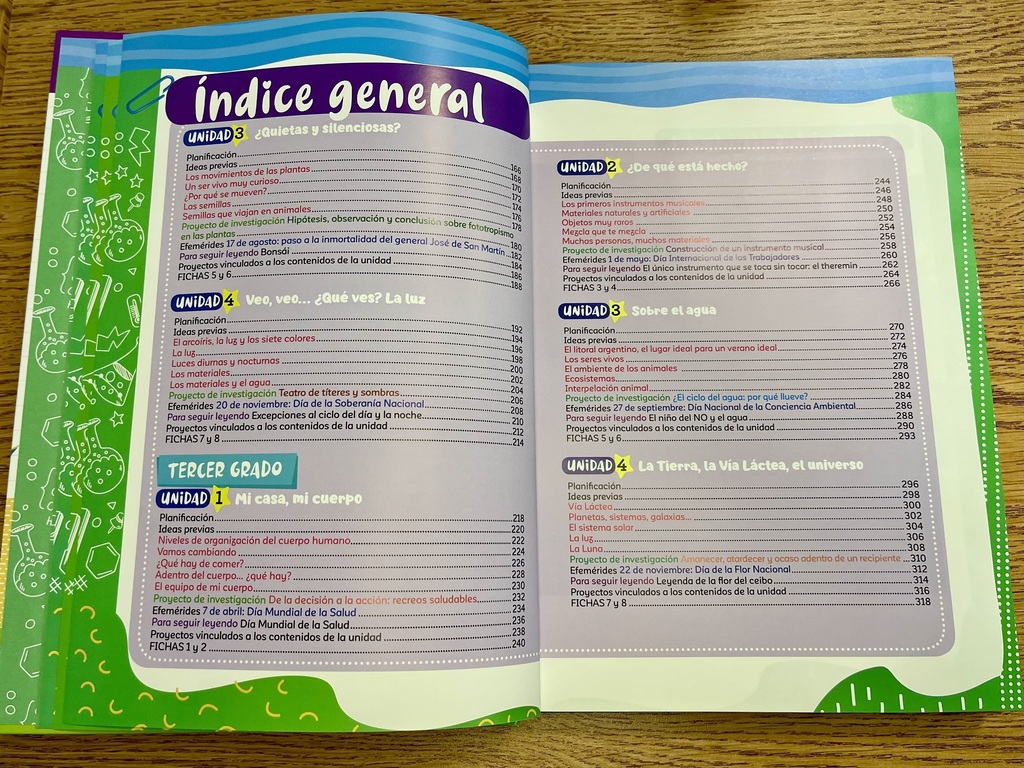 Índice general
UNIDAD 3 ¿Quietas y silenciosas?
Planificación 166
Ideas previas 168
Los movimientos de las plantas 170
Un ser vivo muy curioso 172
¿Por qué se mueven? 174
Las semillas 176
Semillas que viajan en animales 178
Proyecto de investigación Hipótesis, observación y conclusión sobre fototropismo
en las plantas 180
Efemérides 17 de agosto: paso a la inmortalidad del general José de San Martín 182
Para seguir leyendo Bonsái 184
Proyectos vinculados a los contenidos de la unidad 186
FICHAS 5 y 6 188
UNIDAD 4 Veo, veo... ¿Qué ves? La luz
Planificación 192
Ideas previas 194
El arcoíris, la luz y los siete colores 196
La luz 198
Luces diurnas y nocturnas 200
Los materiales 202
Los materiales y el agua 204
Proyecto de investigación Teatro de títeres y sombras 206
Efemérides 20 de noviembre: Día de la Soberanía Nacional 208
Para seguir leyendo Excepciones al ciclo del día y la noche 210
Proyectos vinculados a los contenidos de la unidad 212
FICHAS 7 y 8 214
TERCER GRADO
UNIDAD 1 Mi casa, mi cuerpo
Planificación 218
Ideas previas 220
Niveles de organización del cuerpo humano 222
Vamos cambiando 224
¿Qué hay de comer? 226
Adentro del cuerpo... ¿qué hay? 228
El equipo de mi cuerpo 230
Proyecto de investigación De la decisión a la acción: recreos saludables 232
Efemérides 7 de abril: Día Mundial de la Salud 234
Para seguir leyendo Día Mundial de la Salud 236
Proyectos vinculados a los contenidos de la unidad 238
FICHAS 1 y 2 240
UNIDAD 2 ¿De qué está hecho?
Planificación 244
Ideas previas 246
Los primeros instrumentos musicales 248
Materiales naturales y artificiales 250
Objetos muy raros 252
Mezcla que te mezcla 254
Muchas personas, muchos materiales 256
Proyecto de investigación Construcción de un instrumento musical 258
Efemérides 1 de mayo: Día Internacional de los Trabajadores 260
Para seguir leyendo El único instrumento que se toca sin tocar: el theremin 262
Proyectos vinculados a los contenidos de la unidad 264
FICHAS 3 y 4 266
UNIDAD 3 Sobre el agua
Planificación 270
Ideas previas 272
El litoral argentino, el lugar ideal para un verano ideal 274
Los seres vivos 276
El ambiente de los animales 278
Ecosistemas 280
Interpelación animal 282
Proyecto de investigación ¿El ciclo del agua: por qué llueve? 284
Efemérides 27 de septiembre: Día Nacional de la Conciencia Ambiental 286
Para seguir leyendo El niño del NO y el agua 288
Proyectos vinculados a los contenidos de la unidad 290
FICHAS 5 y 6 293
UNIDAD 4 La Tierra, la Vía Láctea, el universo
Planificación 296
Ideas previas 298
Vía Láctea 300
Planetas, sistemas, galaxias... 302
El sistema solar 304
La luz 306
La Luna 308
Proyecto de investigación Amanecer, atardecer y ocaso adentro de un recipiente 310
Efemérides 22 de noviembre: Día de la Flor Nacional 312
Para seguir leyendo Leyenda de la flor del ceibo 314
Proyectos vinculados a los contenidos de la unidad 316
FICHAS 7 y 8 318